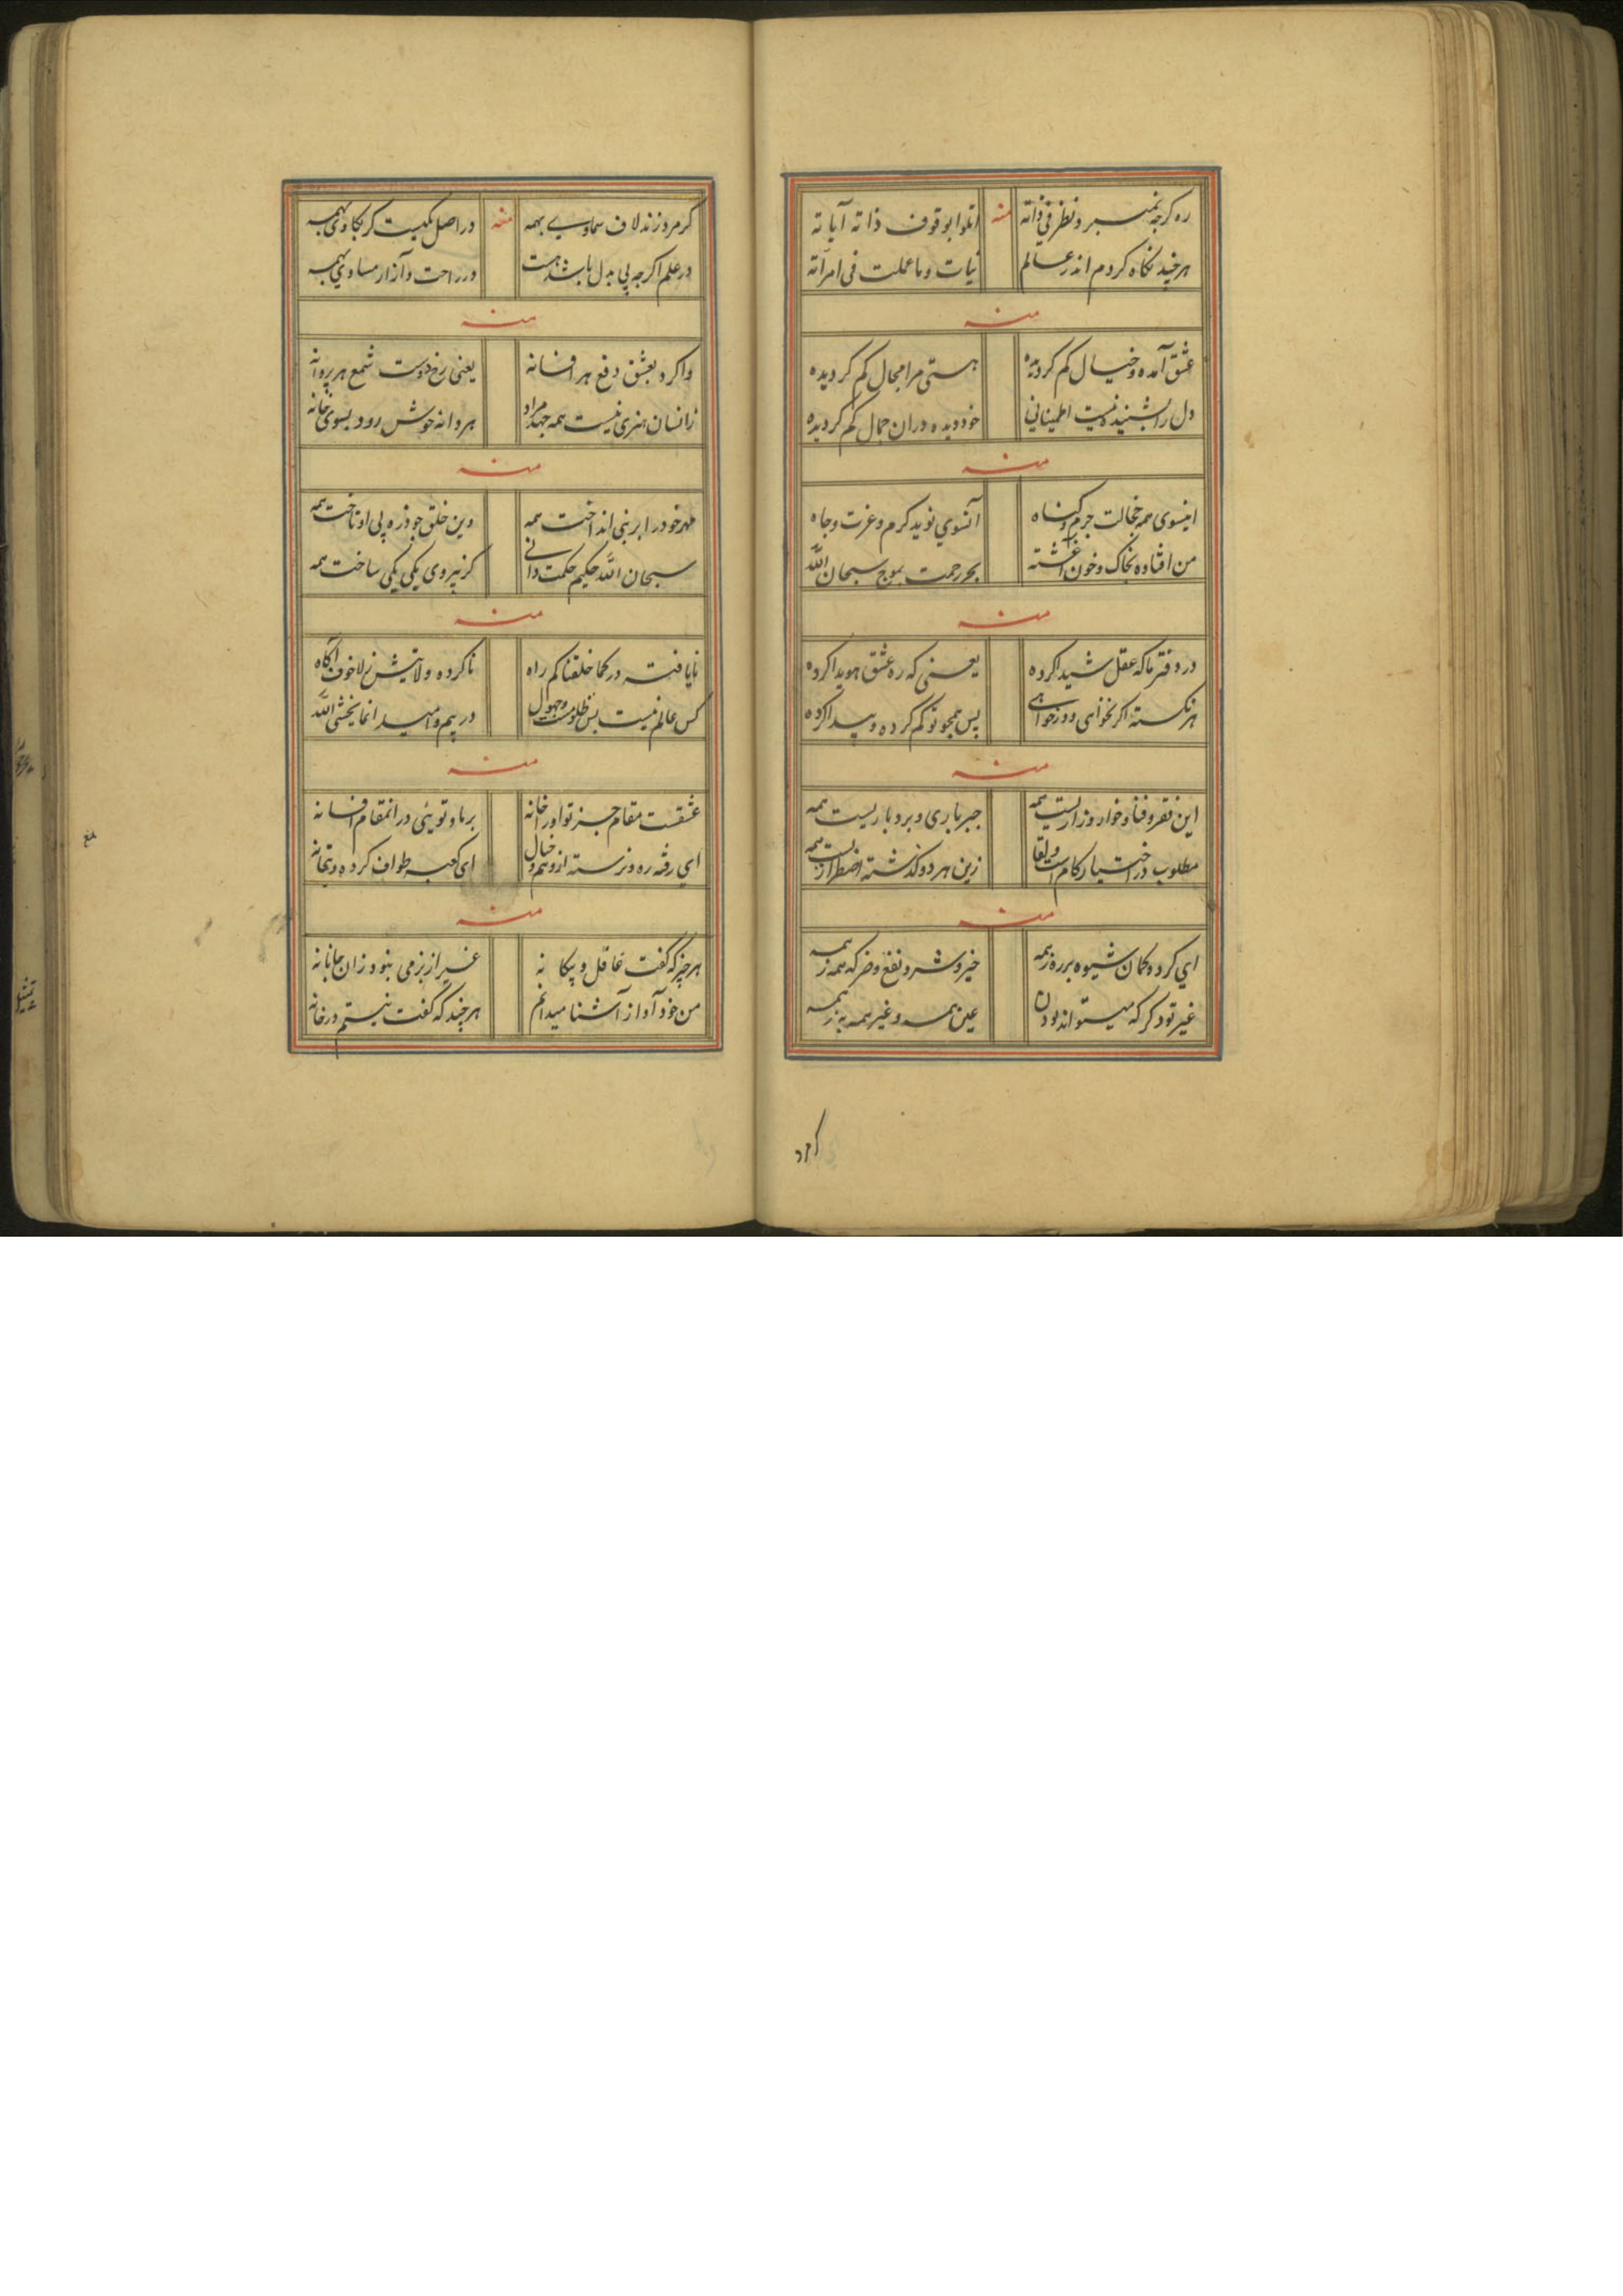 ره گرچه نمیبرد نظر فی ذاته
منه
اتلوا بوقوف ذاته آیاته
هرچند نگاه کردم اندر عالم
نیات وما عملت فی امرآته
منه
عشق آمده و خیال کم کردیده
هستی مرا مجال کم کردیده
دل را بشنیده نیست اطمینانی
خود دیده دران جمال کم کردیده
منه
اینسوی همه خجالت جرم و کناه
آنسوی نوید کرم و عزت و جاه
من افتاده بخاک و خون آغشته
بحر رحمت بموج سبحان الله
منه
در دفتر ما که عقل شیدا کرده
یعنی که ره عشق هویدا کرده
هر نکته اکر نخوانی و ور خوانی
پس همچو تو کم کرده و پیدا کرده
منه
این فقر و فنا و خوار و زاریست همه
جبر باری و بردباریست همه
مطلوب در اختیار کام است و لقا
زین هر دو گذشته اضطراریست همه
منه
ای کرده کمان شیوه بر ره زهمه
خیر و شر و نفع و ضر که همه زهمه
غیر تو دکر که میتواند بودن
عین همه و غیر همه به زهمه
کرد
کر مرد زند لاف سماوی بهمه
منه
در اصل یکیست کر بکاوی بهمه
در علم اکرچه پی بدل باشد هست
در راحت و آزار مساوی بهمه
منه
واکرد بعشق دفع هر افسانه
یعنی رخ دوست شمع هر پروانه
زانسان هنری نیست همه جهد مراد
هر دانه خوش رود بسوی خانه
منه
مهر خود را بر نبی انداخت همه
وین خلق چو ذره پی او تاخت همه
سبحان الله حکیم حکمت دانی
کز پیروی یکی یکی ساخت همه
منه
نایافته در کما خلقناکم راه
ناکرده ولایتش ز لا خوف آکاه
کس عالم نیست بس ظلومست و جهول
در بیم و امید انما یخشی الله
منه
عشقست مقام جز تو او را خانه
بر ما و تویئی در انمقام افسانه
ای رفته ره و نرسته از وهم و خیال
ای کعبه طواف کرده و بتخانه
منه
هر چیز که گفت عاقل و بیکانه
غیر از بزمی بنود زان جانانه
من خود آواز آشنا میدانم
هر چند که گفت نیستم در خانه